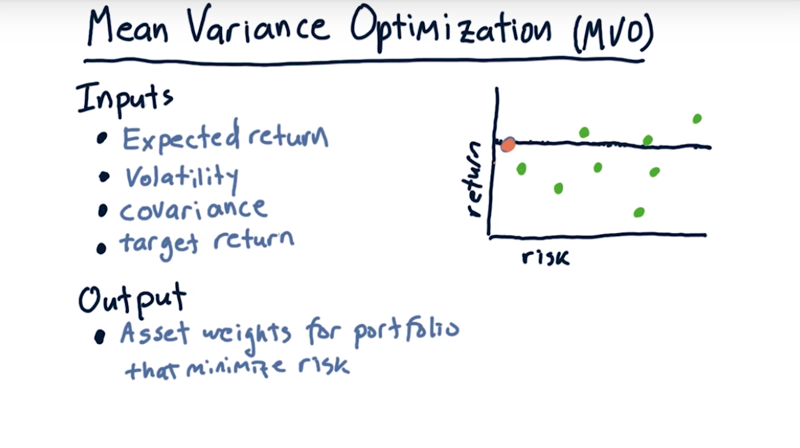 Mean Variance Optimization (MVO)
Inputs
• Expected return
• Volatility
• covariance
• target return
Output
• Asset weights for portfolio
that minimize risk
return
risk